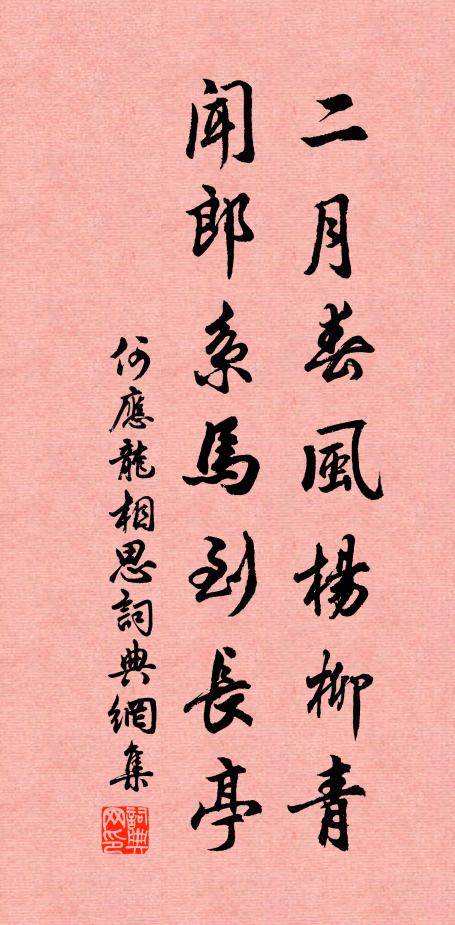 二月春風楊柳青
聞郎系馬到長亭
何應龍相思詞典網集
詞典网印